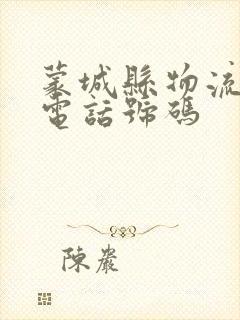 蒙城縣物流
電話號碼
陳嚴